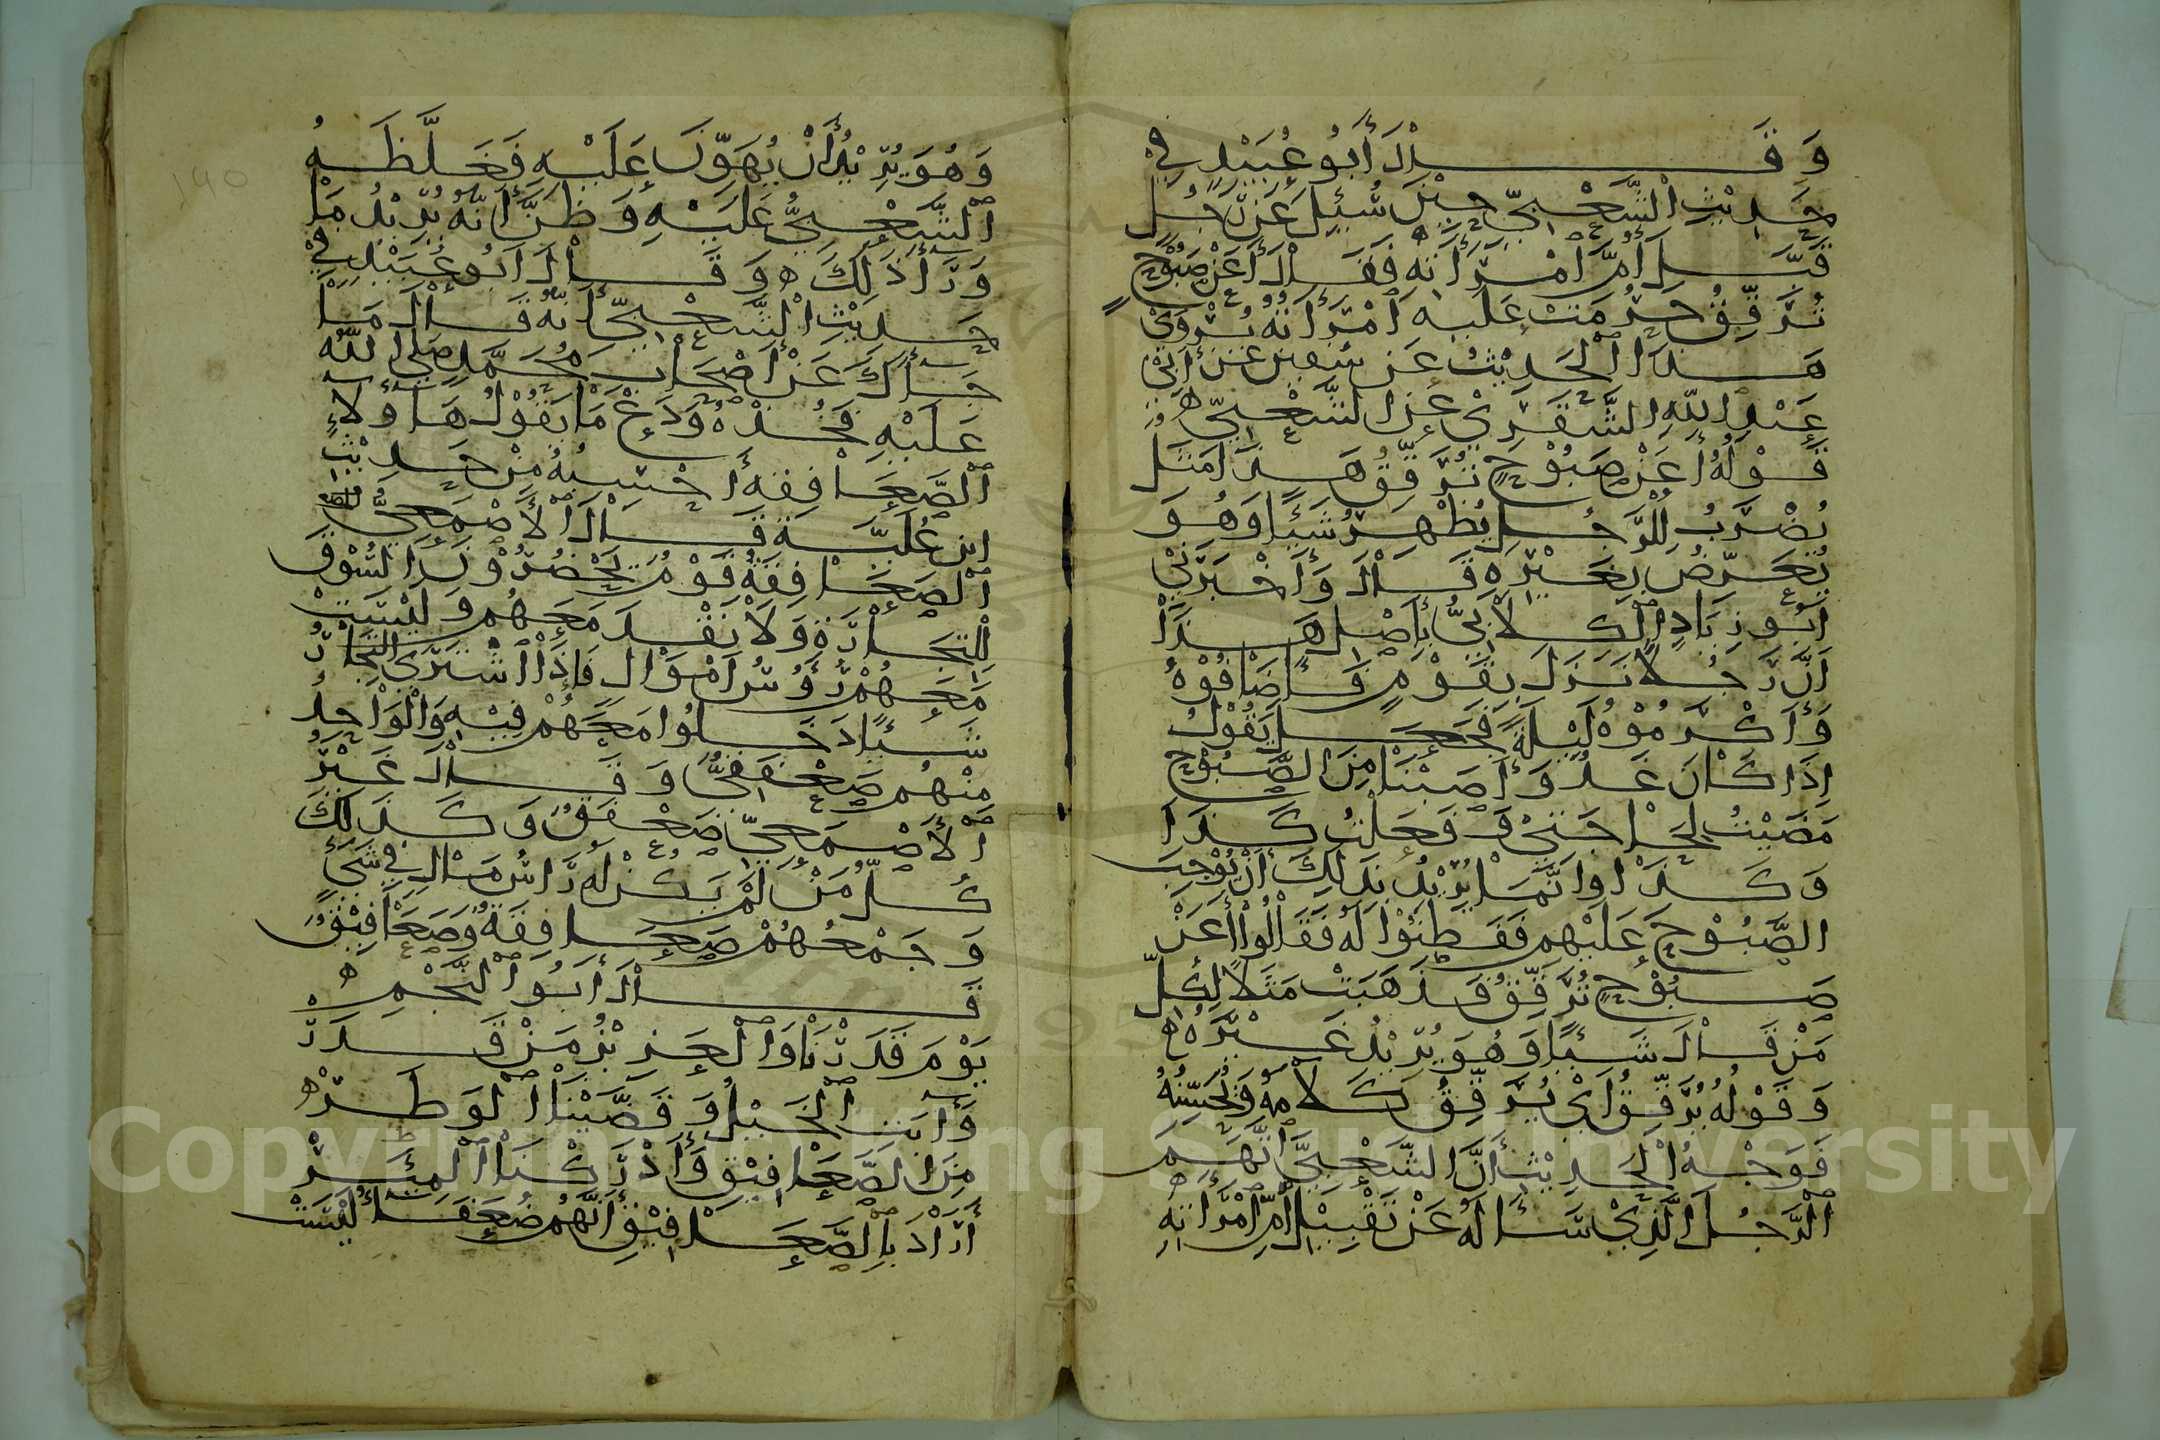 وَقَالَ أَبُو عُبَيْدٍ فِي
حَدِيْثِ الشَّعْبِيِّ حِيْنَ سُئِلَ عَنْ رَجُلٍ
قَبَّلَ أُمَّ امْرَأَتِهِ فَقَالَ أَعَنْ صَبُوْحٍ
تُرَقِّقُ حَرُمَتْ عَلَيْهِ امْرَأَتُهُ يُرْوَى
هَذَا الْحَدِيْثُ عَنْ سُفْيٰنَ عَنْ أَبِيْ
عَبْدِ اللهِ الشَّقَرِيْ عَنِ الشَّعْبِيِّ ه
قَوْلُهُ أَعَنْ صَبُوْحٍ تُرَقِّقُ هَذَا مَثَلٌ
يُضْرَبُ لِلرَّجُلِ يُظْهِرُ شَيْئًا وَهُوَ
يُعَرِّضُ بِغَيْرِهِ قَالَ وَأَخْبَرَنِيْ
أَبُو زِيَادٍ الْكِلَابِيُّ بِأَصْلِ هَذَا
أَنَّ رَجُلًا نَزَلَ بِقَوْمٍ فَأَضَافُوْهُ
وَأَكْرَمُوْهُ لَيْلَةً فَجَعَلَ يَقُوْلُ
إِذَا كَانَ غَدٌ وَأَصَبْنَا مِنَ الصَّبُوْحِ
مَضَيْتُ لِحَاجَتِيْ وَفَعَلْتُ كَذَا
وَكَذَا وَإِنَّمَا يُرِيْدُ بِذَلِكَ أَنْ يُوْجِبَ
الصَّبُوْحَ عَلَيْهِمْ فَفَطِنُوْا لَهُ فَقَالُوْا أَعَنْ
صَبُوْحٍ تُرَقِّقُ فَذَهَبَتْ مَثَلًا لِكُلِّ
مَنْ قَالَ شَيْئًا وَهُوَ يُرِيْدُ غَيْرَهُ ه
وَقَوْلُهُ يُرَقِّقُ أَيْ يُرَقِّقُ كَلَامَهُ وَيُحَسِّنُهُ
فَوَجْهُ الْحَدِيْثِ أَنَّ الشَّعْبِيَّ اتَّهَمَ
الرَّجُلَ الَّذِيْ سَأَلَهُ عَنْ تَقْبِيْلِ أُمِّ امْرَأَتِهِ
وَهُوَ يُرِيْدُ أَنْ يُهَوِّنَ عَلَيْهِ فَغَلَّظَهُ
الشَّعْبِيُّ عَلَيْهِ وَظَنَّ أَنَّهُ يُرِيْدُ مَا
وَرَاءَ ذَلِكَ ه وَقَالَ أَبُو عُبَيْدٍ فِي
حَدِيْثِ الشَّعْبِيِّ أَنَّهُ قَالَ مَا
جَاءَكَ عَنْ أَصْحَابِ مُحَمَّدٍ صَلَّى اللهُ
عَلَيْهِ فَخُذْهُ وَدَعْ مَا يَقُوْلُ هَاؤُلَاءِ
الصَّعَافِقَةُ أَحْسِبُهُ مِنْ حَدِيْثِ
ابْنِ عُلَيَّةَ قَالَ الْأَصْمَعِيُّ
الصَّعَافِقَةُ قَوْمٌ يَحْضُرُوْنَ السُّوْقَ
لِلتِّجَارَةِ وَلَا نَقْدَ مَعَهُمْ وَلَيْسَتْ
مَعَهُمْ رُؤُسُ أَمْوَالٍ فَإِذَا اشْتَرَى التُّجَّارُ
شَيْئًا دَخَلُوا مَعَهُمْ فِيْهِ وَالْوَاحِدُ
مِنْهُمْ صَعْفَقِيٌّ وَقَالَ غَيْرُ
الْأَصْمَعِيِّ صَعْفَقٌ وَكَذَلِكَ
كُلُّ مَنْ لَمْ يَكُنْ لَهُ رَاسُ مَالٍ فِي شَيْءٍ
وَجَمْعُهُمْ صَعَافِقَةٌ وَصَعَافِيْقُ
قَالَ أَبُو النَّجْمِ ه
يَوْمَ قَدَرْنَا وَالْعَزِيْزُ مَنْ قَدَرْ
وَآبَتِ الْخَيْلُ وَقَضَّيْنَا الْوَطَرْ ه
مِنَ الصَّعَافِيْقِ وَأَدْرَكْنَا الْمِئَرْ
أَرَادَ بِالصَّعَافِيْقِ أَنَّهُمْ ضُعَفَاءُ لَيْسَتْ